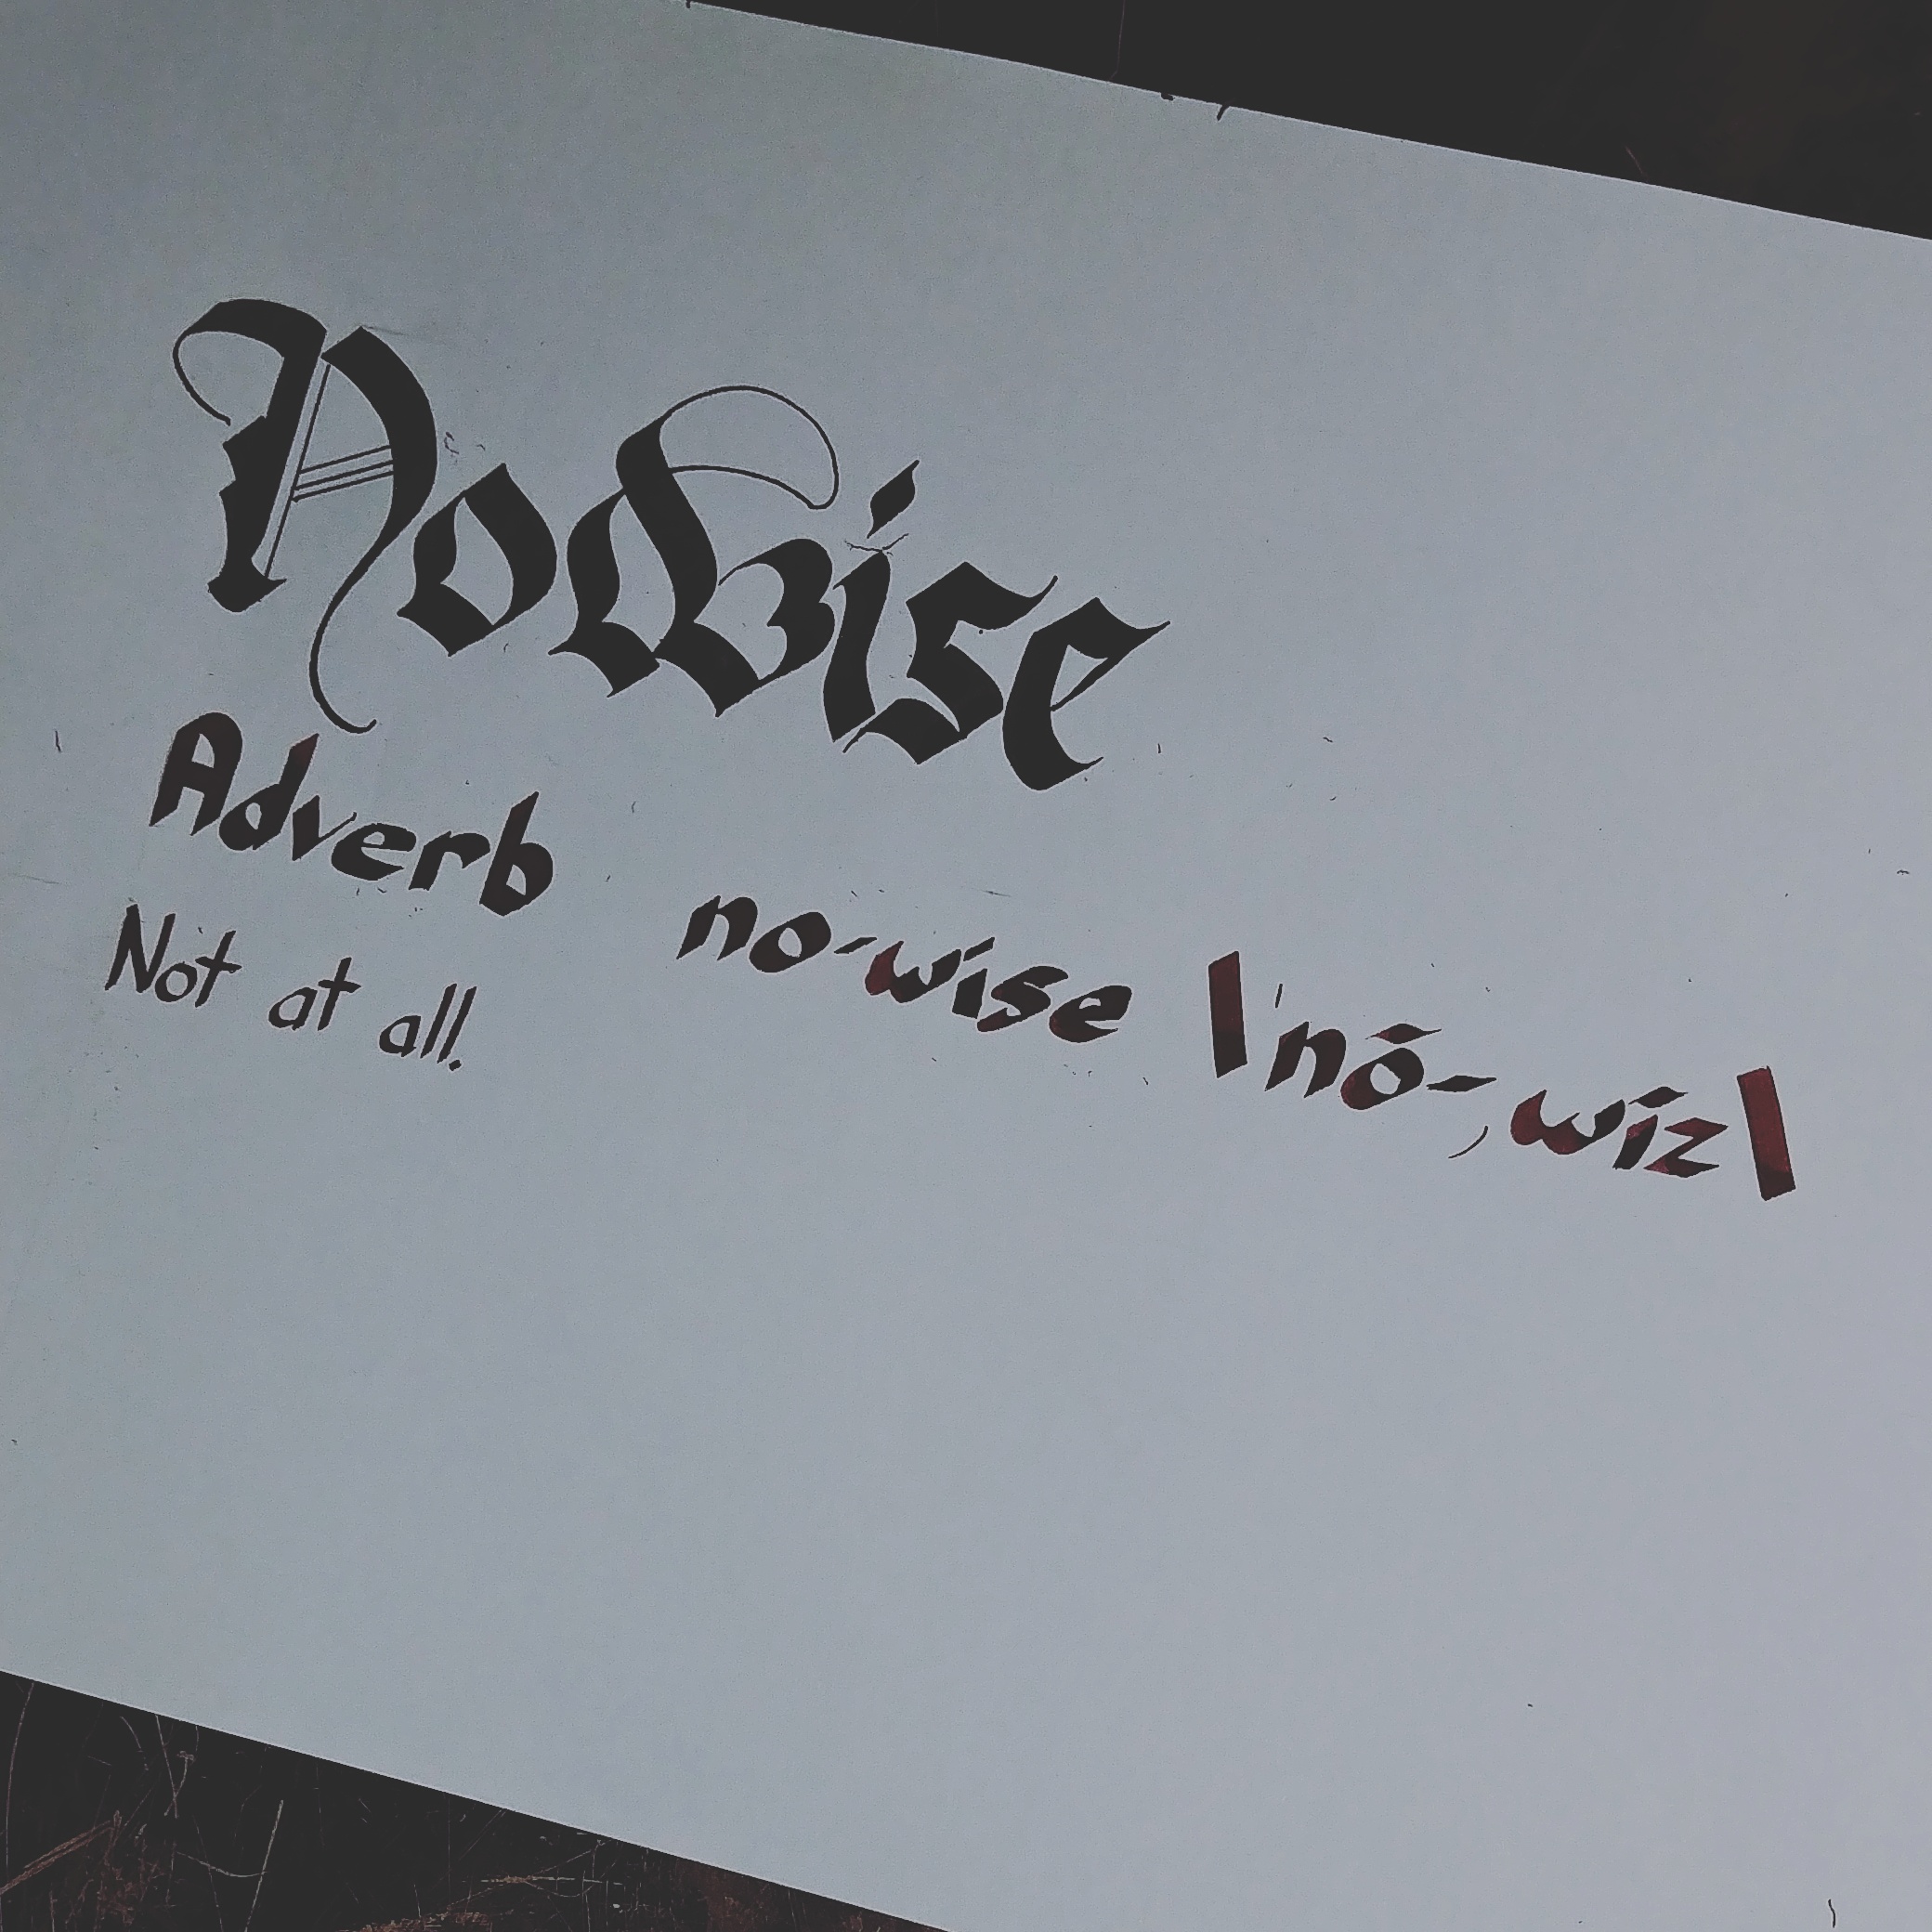 Nowise
Adverb no-wise \ˈnō-ˌwīz\
Not at all.